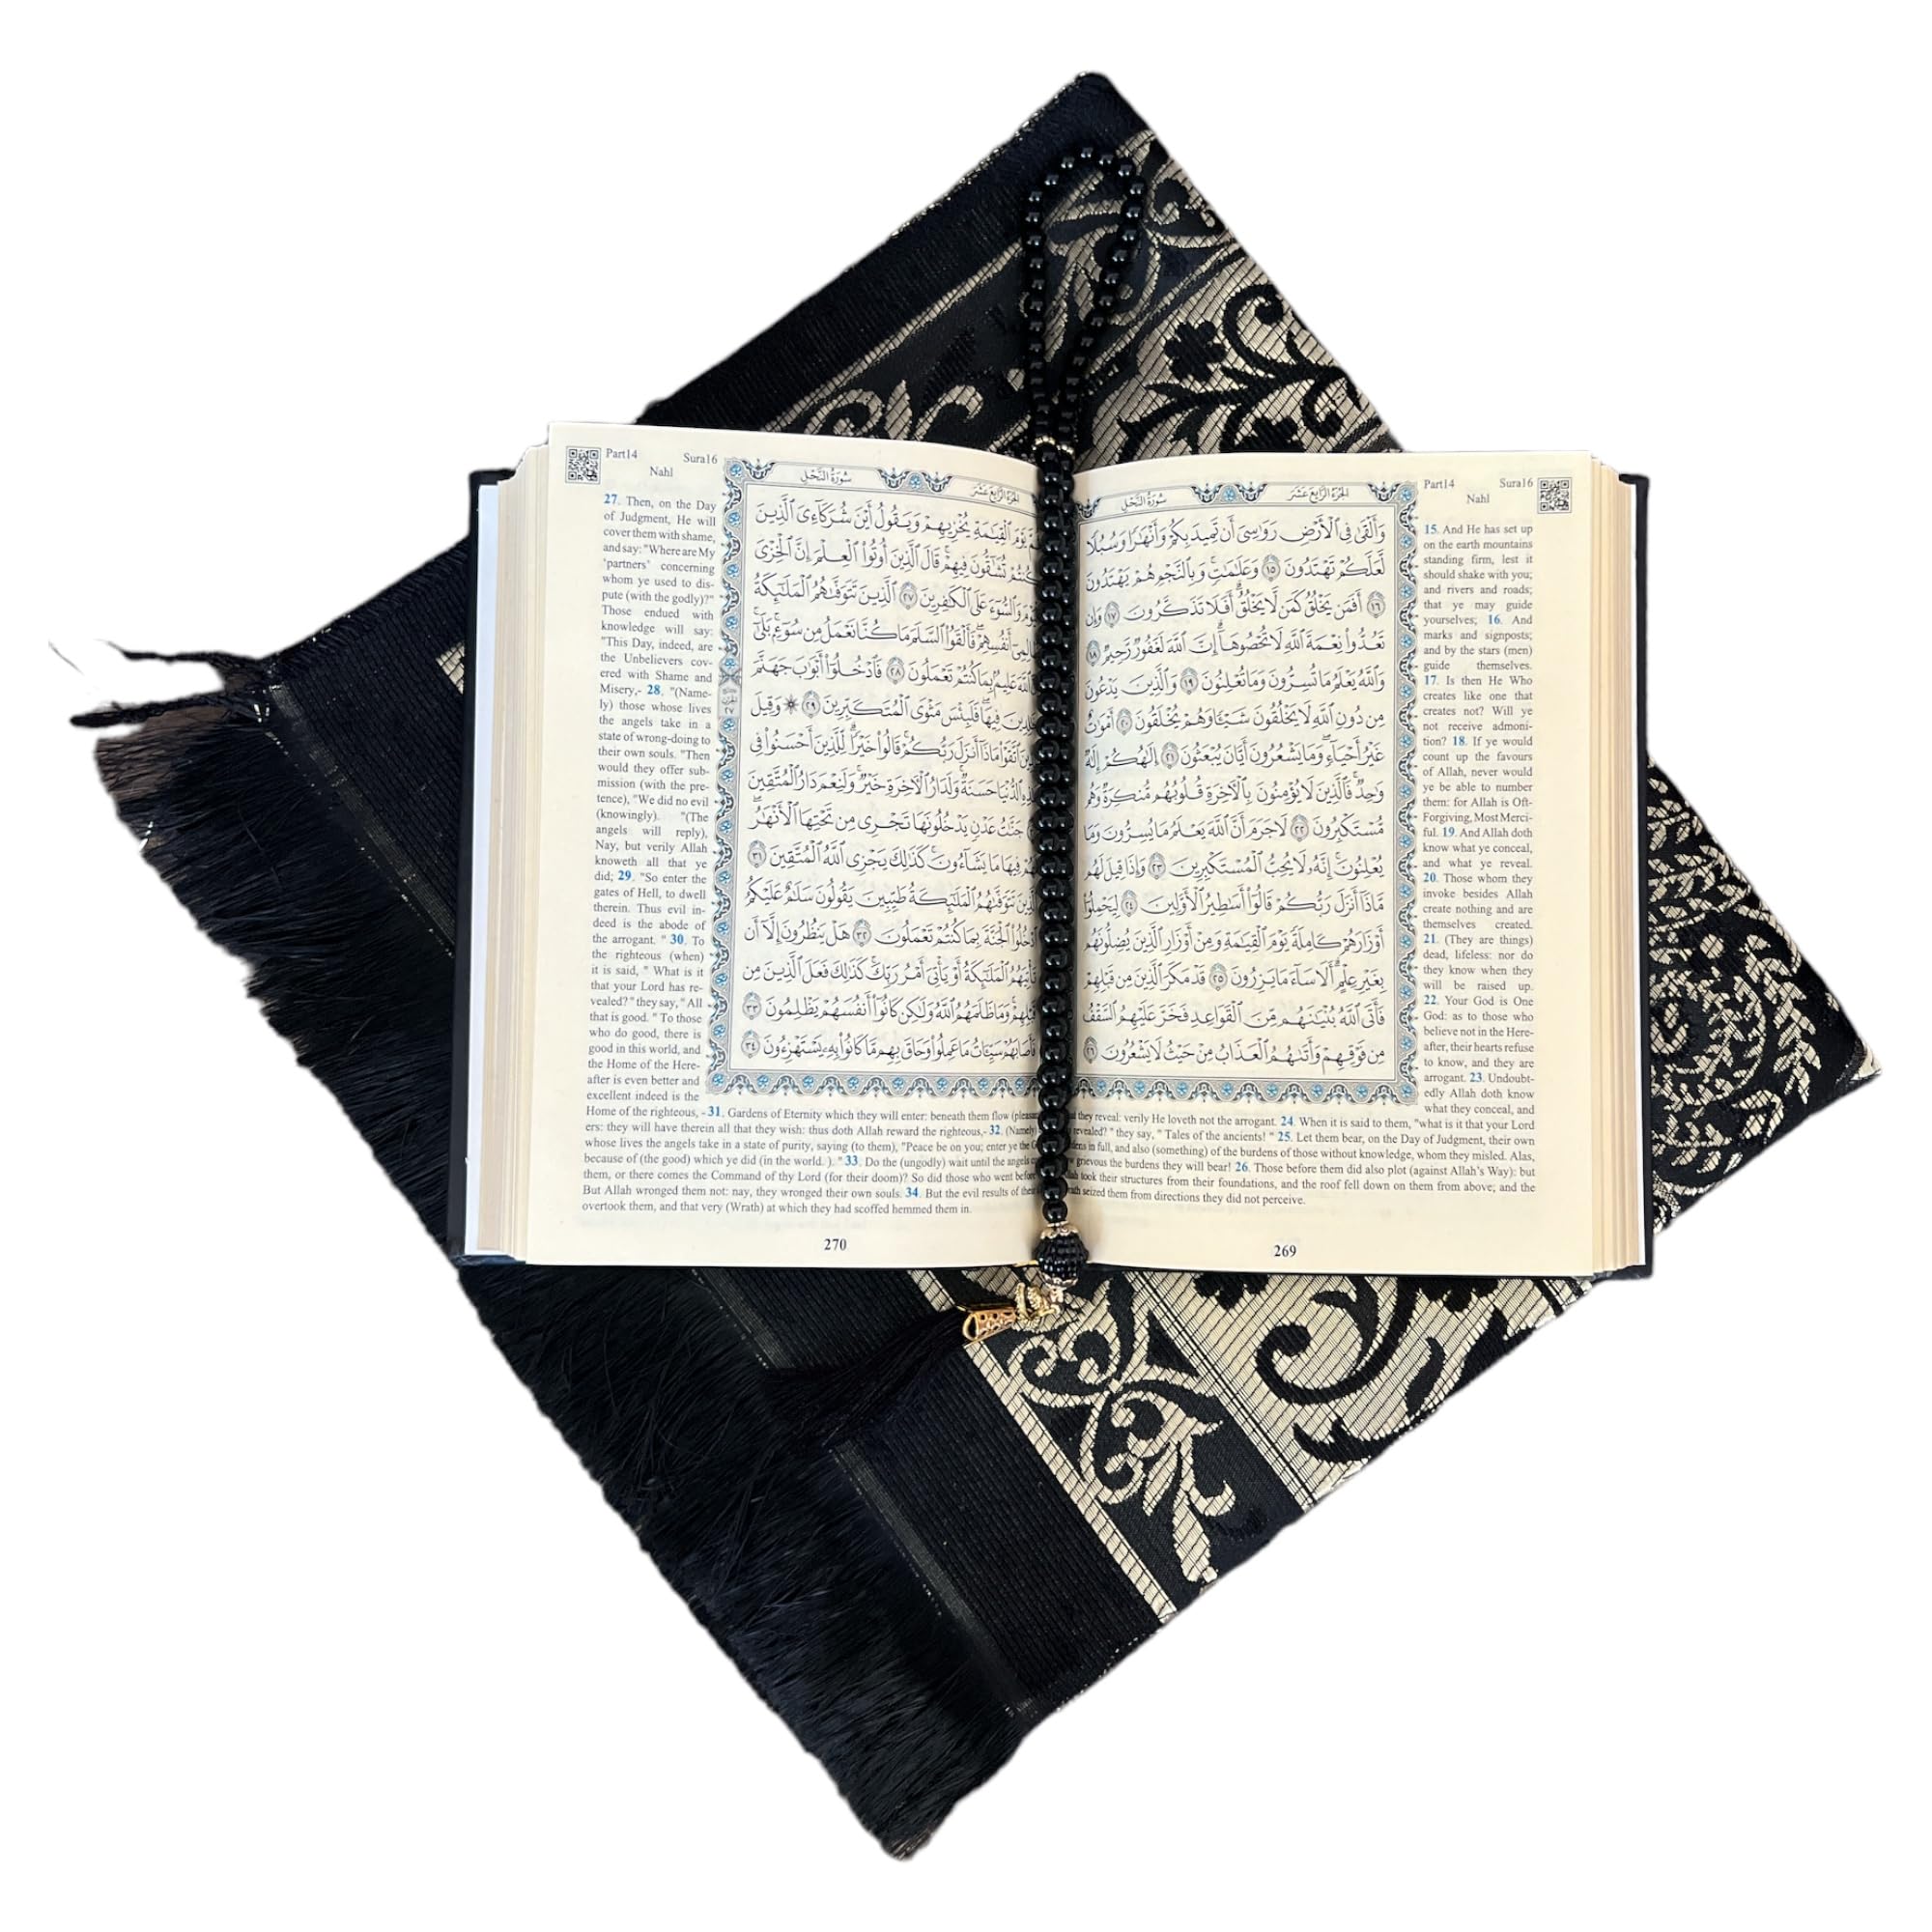 Part14 Sura16
Nahl
سُورَةُ النَّحْلِ
الجُزْءُ الرَّابِعَ عَشَرَ
وَأَلْقَىٰ فِى ٱلْأَرْضِ رَوَٰسِىَ أَن تَمِيدَ بِكُمْ وَأَنْهَٰرًا وَسُبُلًا
لَّعَلَّكُمْ تَهْتَدُونَ ١٥ وَعَلَٰمَٰتٍ ۚ وَبِٱلنَّجْمِ هُمْ يَهْتَدُونَ
١٦ أَفَمَن يَخْلُقُ كَمَن لَّا يَخْلُقُ ۗ أَفَلَا تَذَكَّرُونَ ١٧ وَإِن
تَعُدُّوا۟ نِعْمَةَ ٱللَّهِ لَا تُحْصُوهَآ ۗ إِنَّ ٱللَّهَ لَغَفُورٌ رَّحِيمٌ ١٨
وَٱللَّهُ يَعْلَمُ مَا تُسِرُّونَ وَمَا تُعْلِنُونَ ١٩ وَٱلَّذِينَ يَدْعُونَ
مِن دُونِ ٱللَّهِ لَا يَخْلُقُونَ شَيْـًٔا وَهُمْ يُخْلَقُونَ ٢٠ أَمْوَٰتٌ
غَيْرُ أَحْيَآءٍ ۖ وَمَا يَشْعُرُونَ أَيَّانَ يُبْعَثُونَ ٢١ إِلَٰهُكُمْ إِلَٰهٌ
وَٰحِدٌ ۚ فَٱلَّذِينَ لَا يُؤْمِنُونَ بِٱلْـَٔاخِرَةِ قُلُوبُهُم مُّنكِرَةٌ وَهُم
مُّسْتَكْبِرُونَ ٢٢ لَا جَرَمَ أَنَّ ٱللَّهَ يَعْلَمُ مَا يُسِرُّونَ وَمَا
يُعْلِنُونَ ۚ إِنَّهُۥ لَا يُحِبُّ ٱلْمُسْتَكْبِرِينَ ٢٣ وَإِذَا قِيلَ لَهُم
مَّاذَآ أَنزَلَ رَبُّكُمْ ۙ قَالُوٓا۟ أَسَٰطِيرُ ٱلْأَوَّلِينَ ٢٤ لِيَحْمِلُوٓا۟
أَوْزَارَهُمْ كَامِلَةً يَوْمَ ٱلْقِيَٰمَةِ ۙ وَمِنْ أَوْزَارِ ٱلَّذِينَ يُضِلُّونَهُم
بِغَيْرِ عِلْمٍ ۗ أَلَا سَآءَ مَا يَزِرُونَ ٢٥ قَدْ مَكَرَ ٱلَّذِينَ مِن قَبْلِهِمْ
فَأَتَى ٱللَّهُ بُنْيَٰنَهُم مِّنَ ٱلْقَوَاعِدِ فَخَرَّ عَلَيْهِمُ ٱلسَّقْفُ
مِن فَوْقِهِمْ وَأَتَىٰهُمُ ٱلْعَذَابُ مِنْ حَيْثُ لَا يَشْعُرُونَ ٢٦
15. And He has set up
on the earth mountains
standing firm, lest it
should shake with you;
and rivers and roads;
that ye may guide
yourselves; 16. And
marks and signposts;
and by the stars (men)
guide themselves.
17. Is then He Who
creates like one that
creates not? Will ye
not receive admoni-
tion? 18. If ye would
count up the favours
of Allah, never would
ye be able to number
them: for Allah is Oft-
Forgiving, Most Merci-
ful. 19. And Allah doth
know what ye conceal,
and what ye reveal.
20. Those whom they
invoke besides Allah
create nothing and are
themselves created.
21. (They are things)
dead, lifeless: nor do
they know when they
will be raised up.
22. Your God is One
God: as to those who
believe not in the Here-
after, their hearts refuse
to know, and they are
arrogant. 23. Undoubt-
edly Allah doth know
what they conceal, and
they reveal: verily He loveth not the arrogant. 24. When it is said to them, "what is it that your Lord
revealed? " they say, " Tales of the ancients! " 25. Let them bear, on the Day of Judgment, their own
in full, and also (something) of the burdens of those without knowledge, whom they misled. Alas,
grievous the burdens they will bear! 26. Those before them did also plot (against Allah's Way): but
took their structures from their foundations, and the roof fell down on them from above; and the
seized them from directions they did not perceive.
269
Part14 Sura16
Nahl
سُورَةُ النَّحْلِ
الجُزْءُ الرَّابِعَ عَشَرَ
يَوْمَ ٱلْقِيَٰمَةِ يُخْزِيهِمْ وَيَقُولُ أَيْنَ شُرَكَآءِىَ ٱلَّذِينَ
كُنتُمْ تُشَٰٓقُّونَ فِيهِمْ ۚ قَالَ ٱلَّذِينَ أُوتُوا۟ ٱلْعِلْمَ إِنَّ ٱلْخِزْىَ
وَٱلسُّوٓءَ عَلَى ٱلْكَٰفِرِينَ ٢٧ ٱلَّذِينَ تَتَوَفَّىٰهُمُ ٱلْمَلَٰٓئِكَةُ
أَنفُسِهِمْ ۖ فَأَلْقَوُا۟ ٱلسَّلَمَ مَا كُنَّا نَعْمَلُ مِن سُوٓءٍۭ ۚ بَلَىٰٓ
ٱللَّهَ عَلِيمٌۢ بِمَا كُنتُمْ تَعْمَلُونَ ٢٨ فَٱدْخُلُوٓا۟ أَبْوَٰبَ جَهَنَّمَ
فِيهَا ۖ فَلَبِئْسَ مَثْوَى ٱلْمُتَكَبِّرِينَ ٢٩ ۞ وَقِيلَ
ٱتَّقَوْا۟ مَاذَآ أَنزَلَ رَبُّكُمْ ۚ قَالُوا۟ خَيْرًا ۗ لِّلَّذِينَ أَحْسَنُوا۟ فِى
ٱلدُّنْيَا حَسَنَةٌ ۚ وَلَدَارُ ٱلْـَٔاخِرَةِ خَيْرٌ ۚ وَلَنِعْمَ دَارُ ٱلْمُتَّقِينَ
جَنَّٰتُ عَدْنٍ يَدْخُلُونَهَا تَجْرِى مِن تَحْتِهَا ٱلْأَنْهَٰرُ ۖ
فِيهَا مَا يَشَآءُونَ ۚ كَذَٰلِكَ يَجْزِى ٱللَّهُ ٱلْمُتَّقِينَ ٣١
تَتَوَفَّىٰهُمُ ٱلْمَلَٰٓئِكَةُ طَيِّبِينَ ۙ يَقُولُونَ سَلَٰمٌ عَلَيْكُمُ
ٱلْجَنَّةَ بِمَا كُنتُمْ تَعْمَلُونَ ٣٢ هَلْ يَنظُرُونَ إِلَّآ أَن
تَأْتِيَهُمُ ٱلْمَلَٰٓئِكَةُ أَوْ يَأْتِىَ أَمْرُ رَبِّكَ ۚ كَذَٰلِكَ فَعَلَ ٱلَّذِينَ مِن
قَبْلِهِمْ ۚ وَمَا ظَلَمَهُمُ ٱللَّهُ وَلَٰكِن كَانُوٓا۟ أَنفُسَهُمْ يَظْلِمُونَ ٣٣
فَأَصَابَهُمْ سَيِّـَٔاتُ مَا عَمِلُوا۟ وَحَاقَ بِهِم مَّا كَانُوا۟ بِهِۦ يَسْتَهْزِءُونَ ٣٤
27. Then, on the Day
of Judgment, He will
cover them with shame,
and say: "Where are My
'partners' concerning
whom ye used to dis-
pute (with the godly)?"
Those endued with
knowledge will say:
"This Day, indeed, are
the Unbelievers cov-
ered with Shame and
Misery,- 28. "(Name-
ly) those whose lives
the angels take in a
state of wrong-doing to
their own souls. "Then
would they offer sub-
mission (with the pre-
tence), "We did no evil
(knowingly). "(The
angels will reply),
Nay, but verily Allah
knoweth all that ye
did; 29. "So enter the
gates of Hell, to dwell
therein. Thus evil in-
deed is the abode of
the arrogant. " 30. To
the righteous (when)
it is said, " What is it
that your Lord has re-
vealed? " they say, " All
that is good. " To those
who do good, there is
good in this world, and
the Home of the Here-
after is even better and
excellent indeed is the
Home of the righteous, - 31. Gardens of Eternity which they will enter: beneath them flow
ers: they will have therein all that they wish: thus doth Allah reward the righteous,- 32. (Namely)
whose lives the angels take in a state of purity, saying (to them), "Peace be on you; enter ye the
because of (the good) which ye did (in the world. ). " 33. Do the (ungodly) wait until the angels
them, or there comes the Command of thy Lord (for their doom)? So did those who went before
But Allah wronged them not: nay, they wronged their own souls. 34. But the evil results of their
overtook them, and that very (Wrath) at which they had scoffed hemmed them in.
270